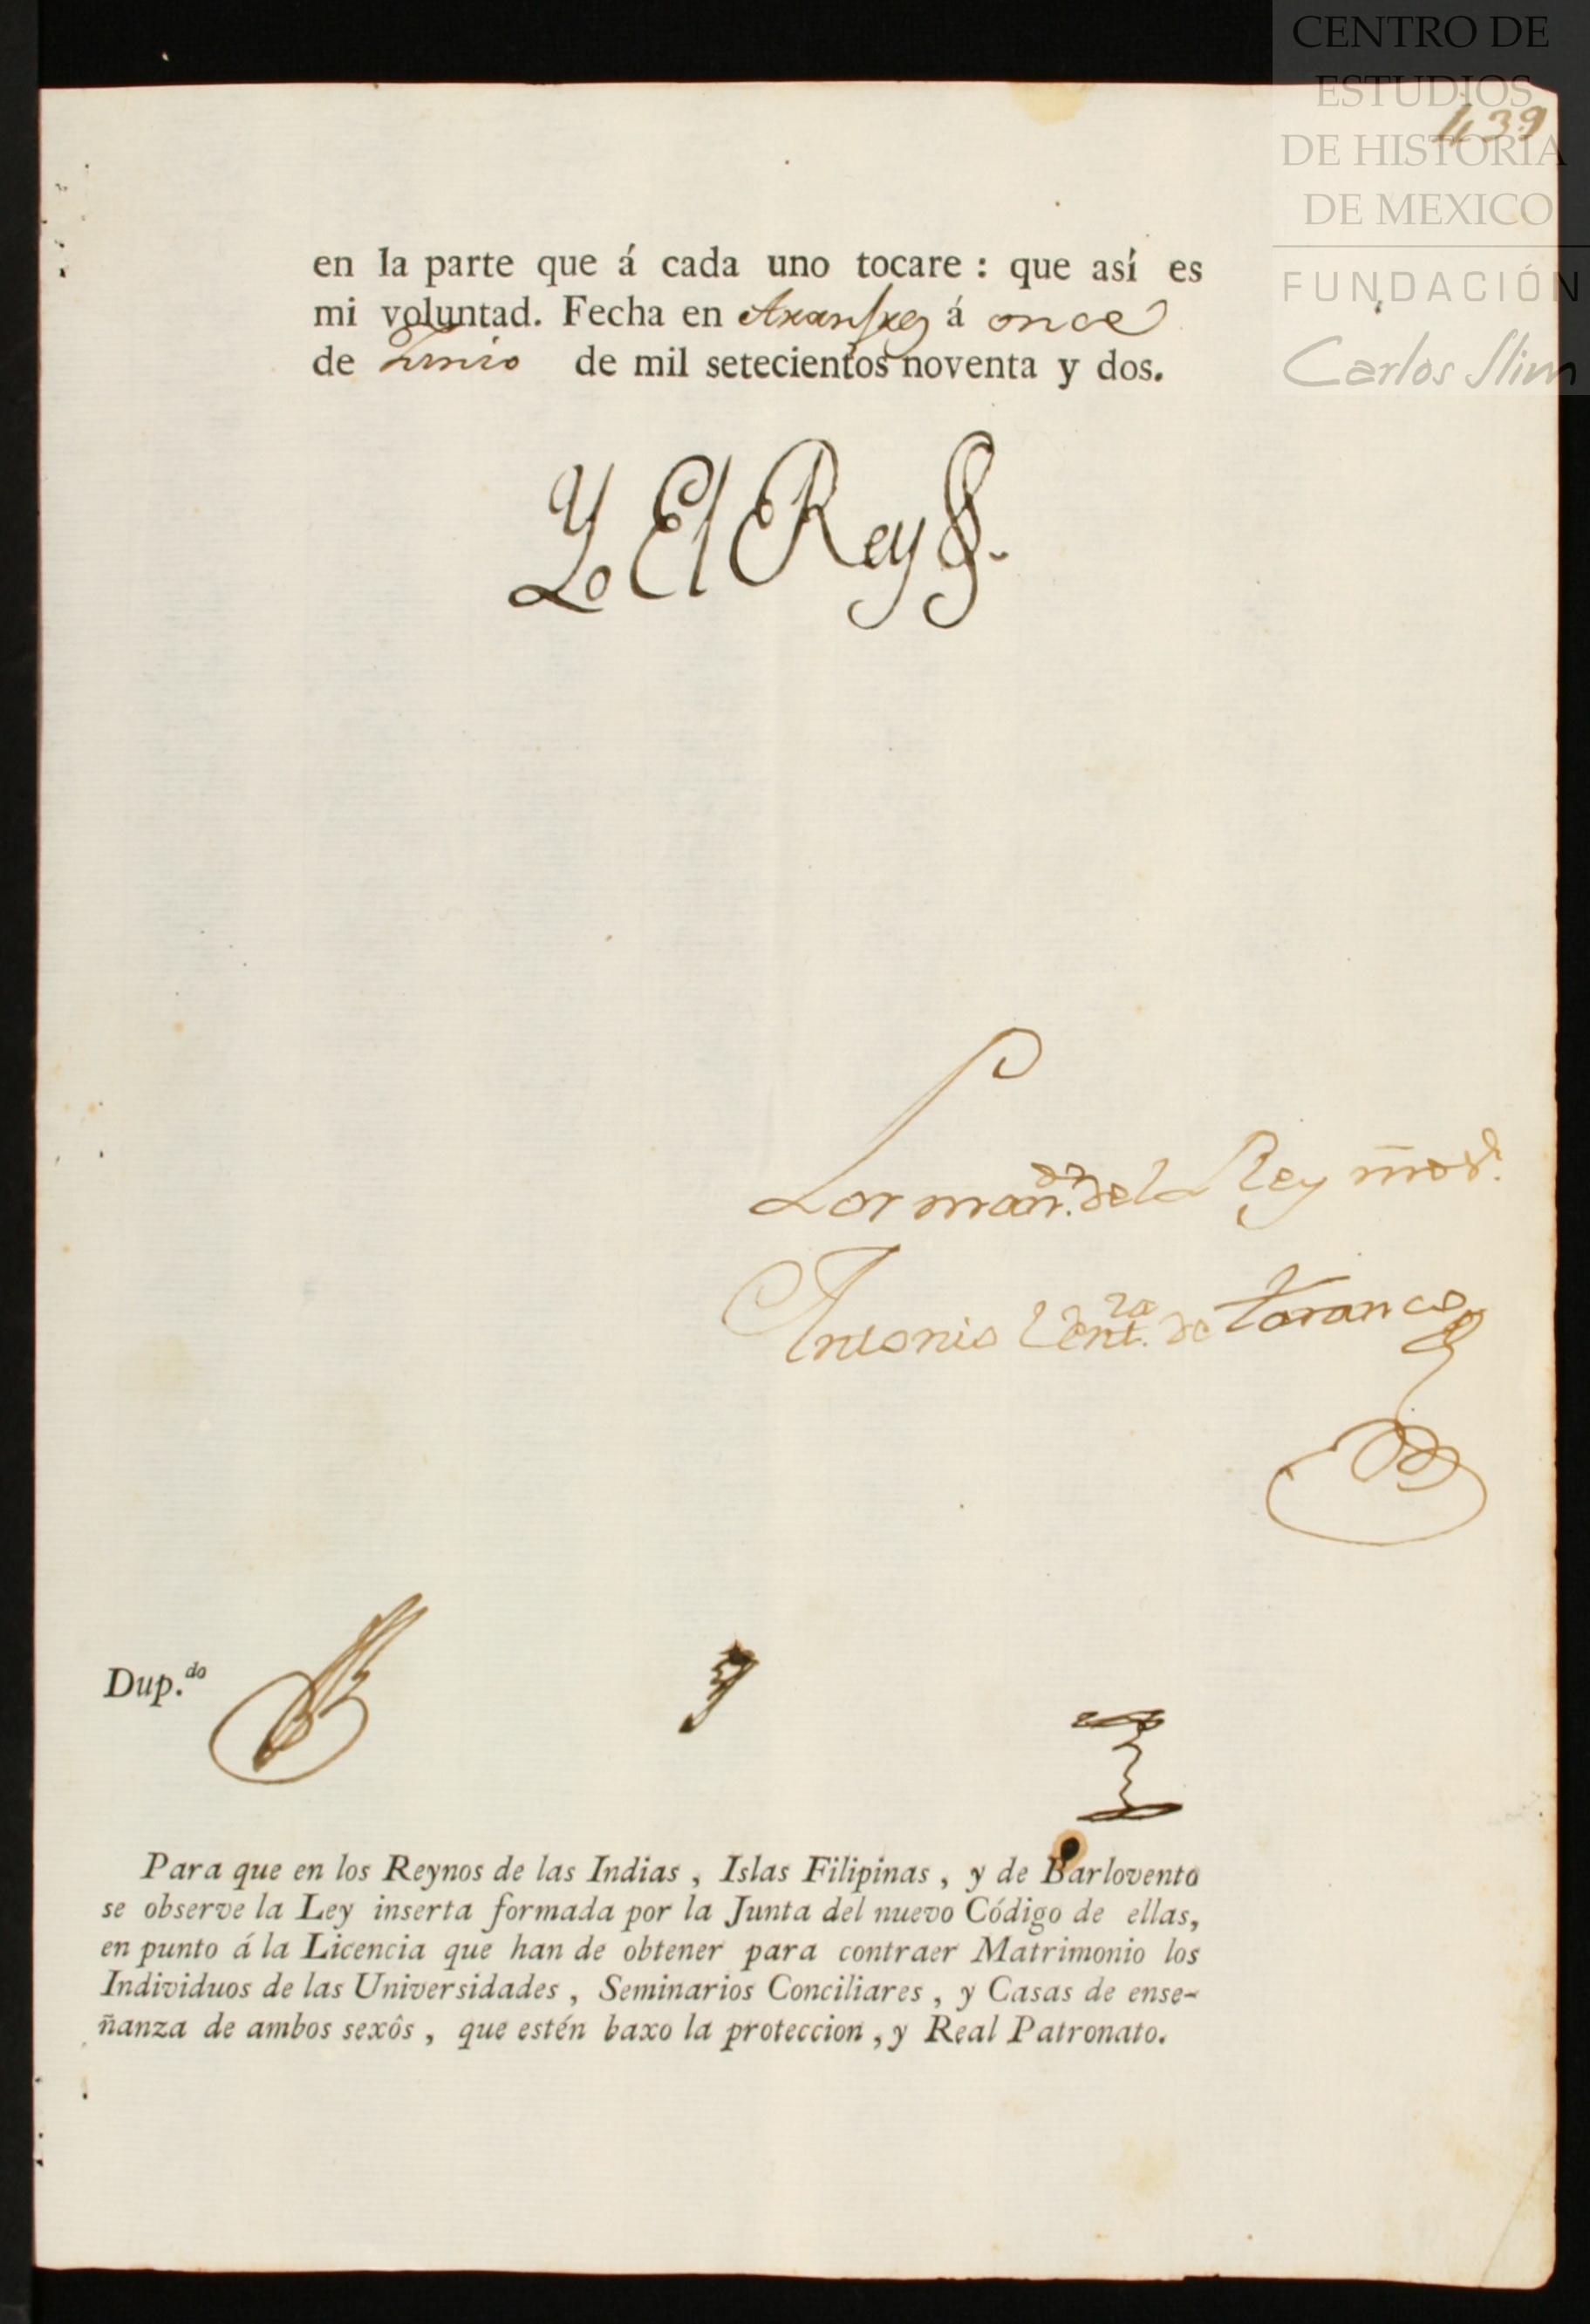 CENTRO DE
ESTUDIOS
DE HISTORIA
DE MEXICO
FUNDACIÓN
Carlos Slim
439
en la parte que á cada uno tocare : que así es
mi voluntad. Fecha en Aranjuez á once
de Junio de mil setecientos noventa y dos.
Yo El Rey
Por man.do del Rey nro s.r
Antonio Vent.ra de Taranco
Dup.do
Para que en los Reynos de las Indias , Islas Filipinas , y de Barlovento
se observe la Ley inserta formada por la Junta del nuevo Código de ellas,
en punto á la Licencia que han de obtener para contraer Matrimonio los
Individuos de las Universidades , Seminarios Conciliares , y Casas de ense-
ñanza de ambos sexôs , que estén baxo la proteccion , y Real Patronato.